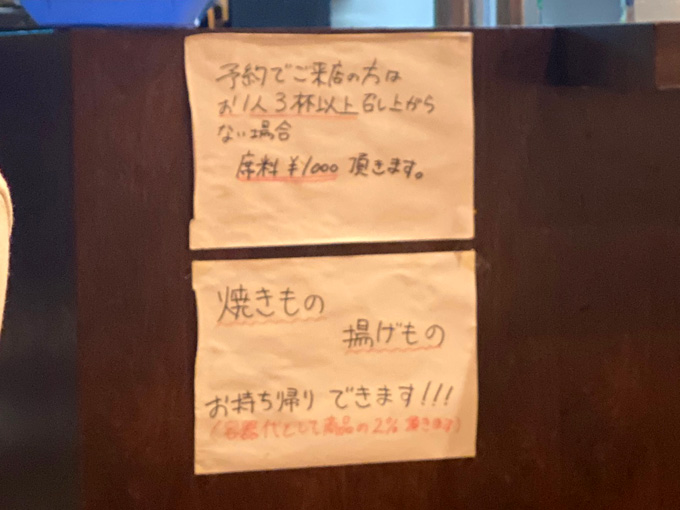 予約でご来店の方は
お1人3杯以上召し上がら
ない場合
席料¥1000頂きます。
焼きもの
揚げもの
お持ち帰りできます!!!
(容器代として商品の2%頂きます)